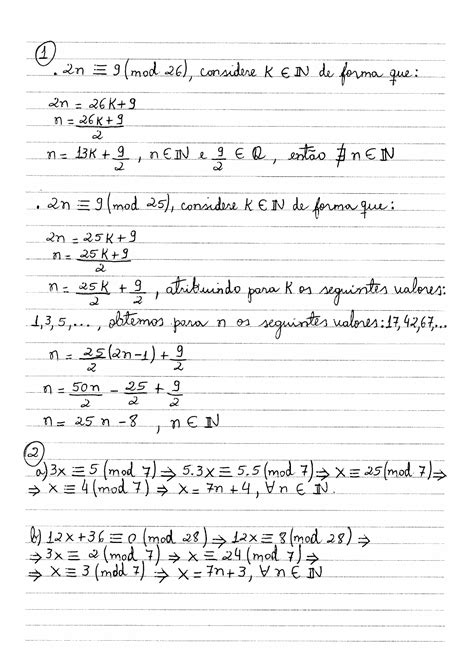 ①
. 2n ≡ 9 (mod 26), considere K ∈ ℕ de forma que:
2n = 26K+9
n = 26K+9 / 2
n = 13K + 9/2 , n ∈ ℕ e 9/2 ∈ ℚ, então ∄ n ∈ ℕ
. 2n ≡ 9 (mod 25), considere K ∈ ℕ de forma que:
2n = 25K+9
n = 25K+9 / 2
n = 25K/2 + 9/2 , atribuindo para K os seguintes valores:
1,3,5,..., obtemos para n os seguintes valores: 17,42,67,...
n = 25/2 (2n-1) + 9/2
n = 50n/2 - 25/2 + 9/2
n = 25 n - 8 , n ∈ ℕ
②
a) 3x ≡ 5 (mod 7) ⇒ 5.3x ≡ 5.5 (mod 7) ⇒ x ≡ 25 (mod 7) ⇒
⇒ x ≡ 4 (mod 7) ⇒ x = 7n + 4, ∀ n ∈ ℕ.
b) 12x + 36 ≡ 0 (mod 28) ⇒ 12x ≡ 8 (mod 28) ⇒
⇒ 3x ≡ 2 (mod 7) ⇒ x ≡ 24 (mod 7) ⇒
⇒ x ≡ 3 (mod 7) ⇒ x = 7n + 3, ∀ n ∈ ℕ